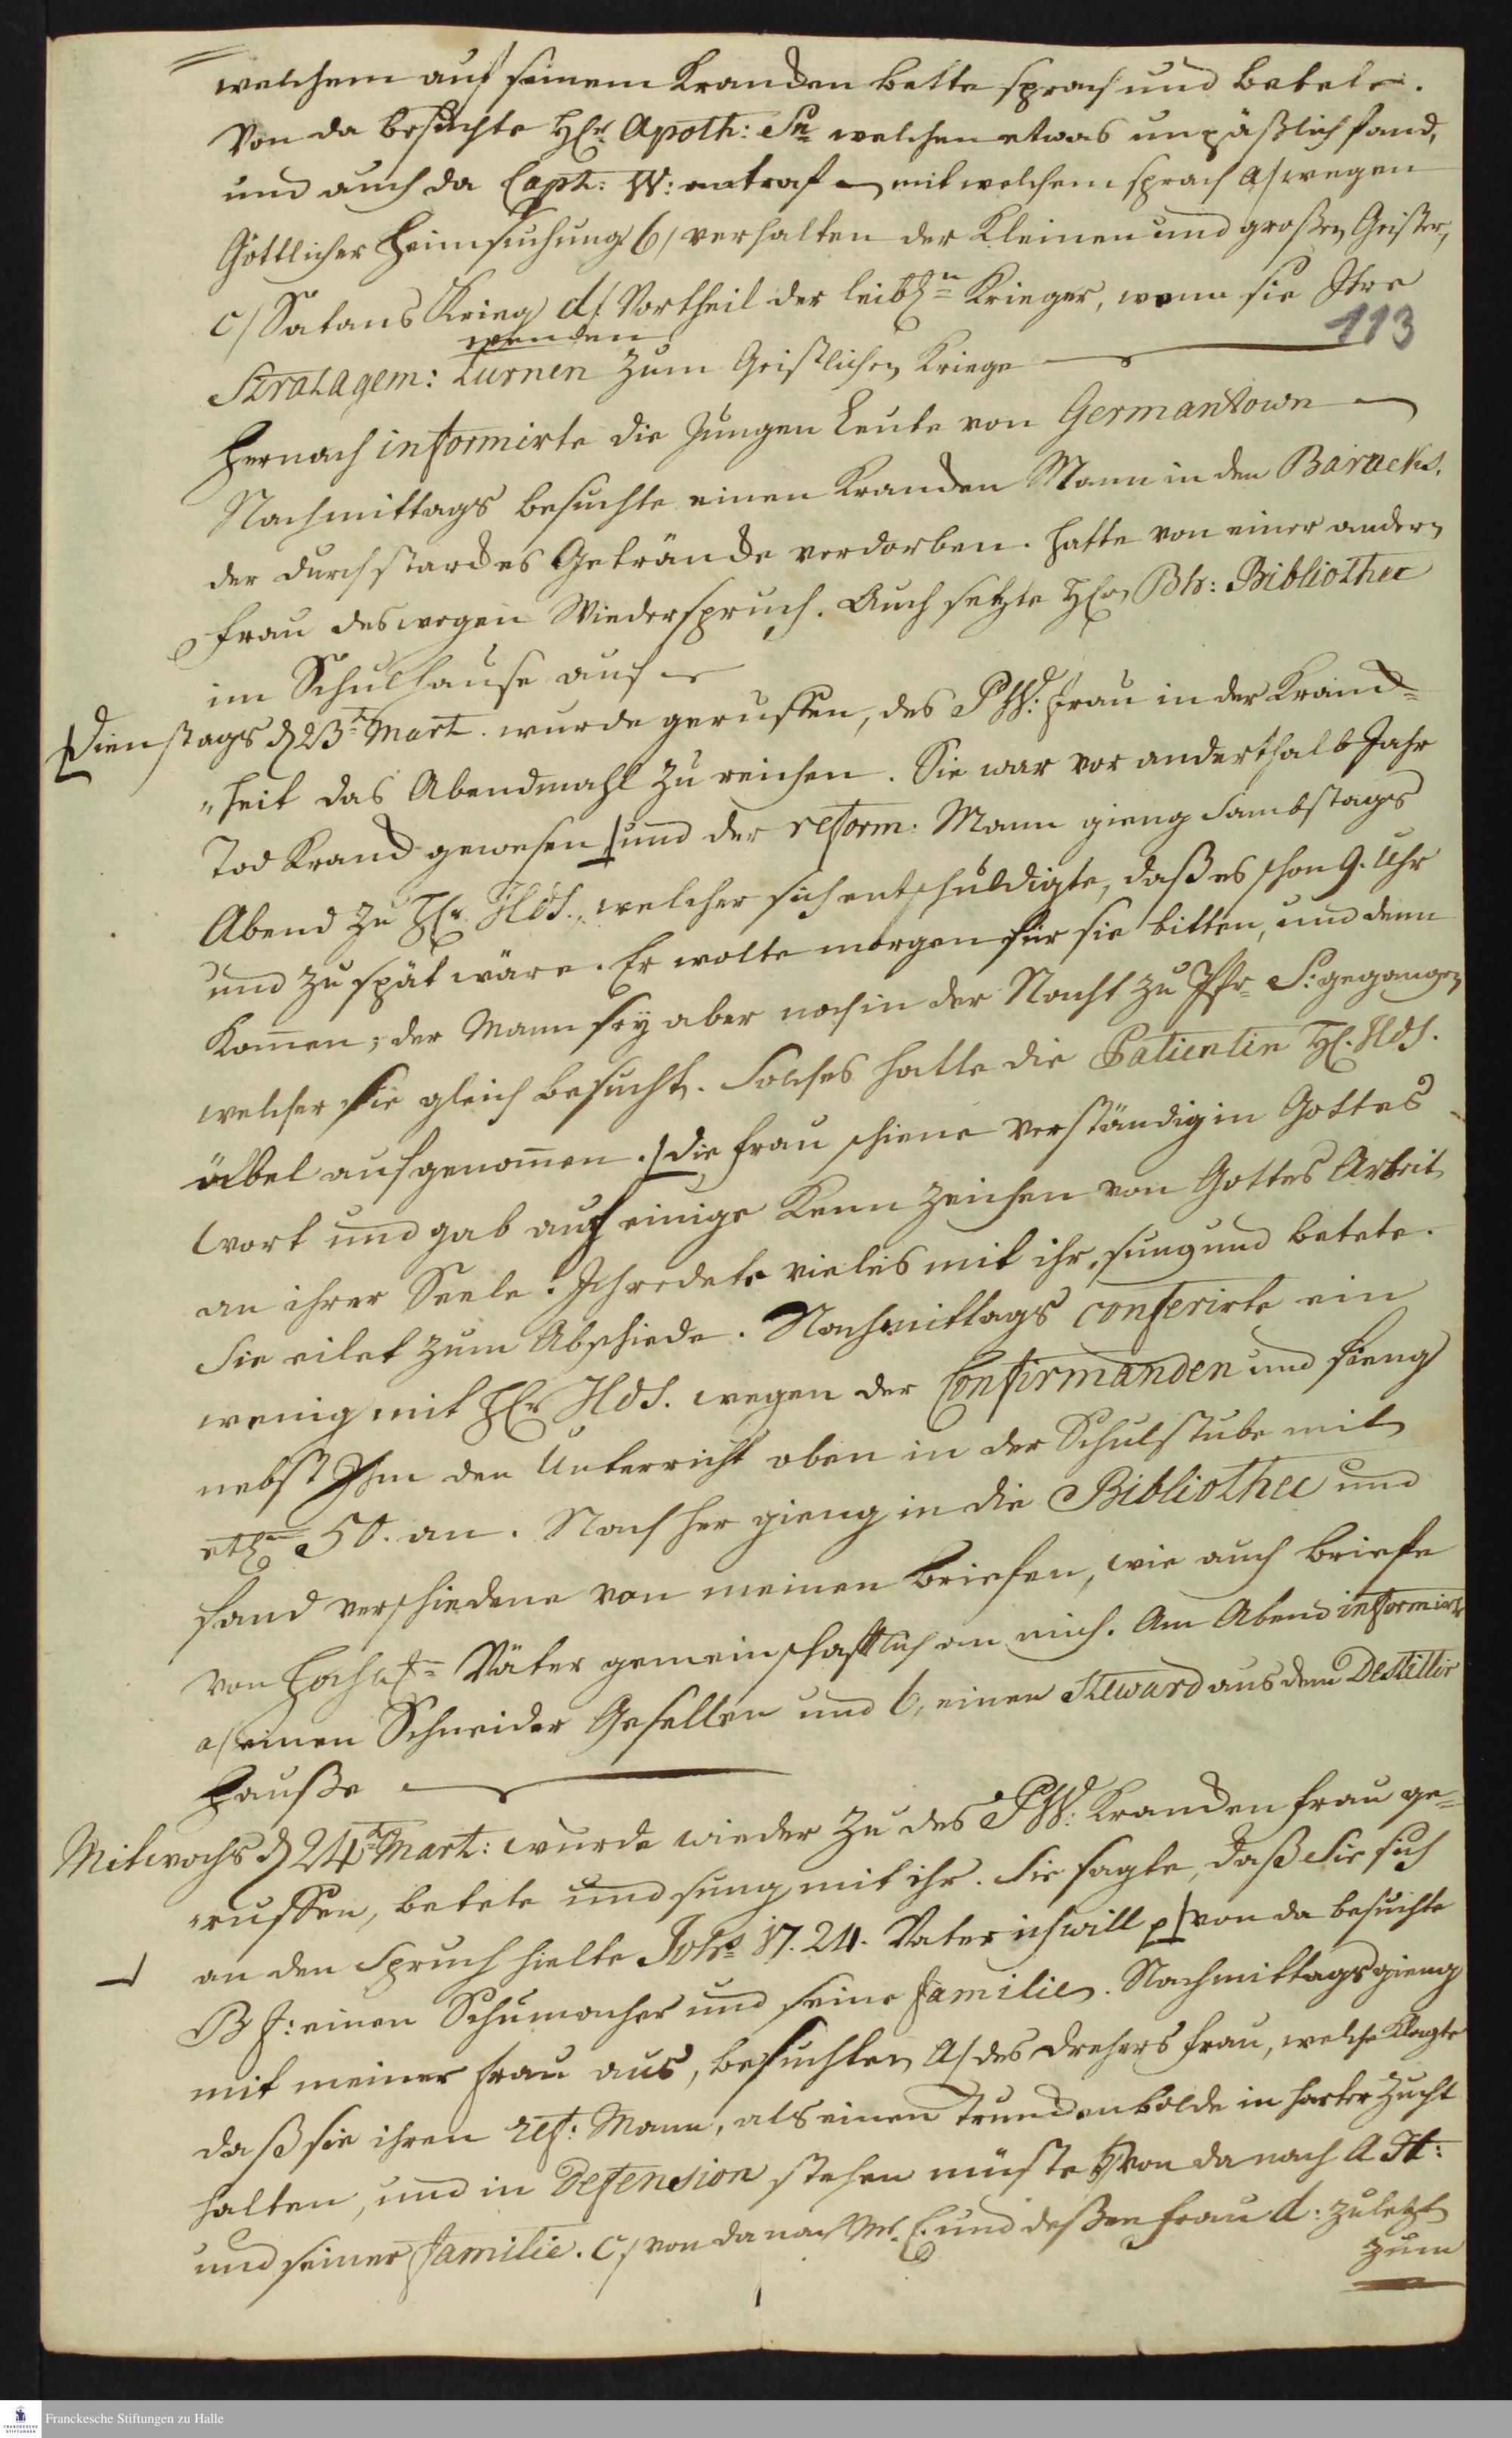 welchem auf seinem Krancken bette sprach und betete.
Von da besuchte HEr. Apoth: Sn welchen etwas unpäßlich fand,
und auch da Capt: W: antraf mit welchem sprach a/ wegen
Göttlicher Heimsuchung b/ verhalten der Kleinen und großen Geister,
c/ Satans Krieg d/ Vortheil der leibl. Krieger, wenn sie Ihre
113
wenden
Stratagem: turnen zum Geistlichen Kriege
Hernach informirte die Jungen Leute von Germantown
Nachmittags besuchte einen Krancken Mann in den Baracks.
der durch starckes Geträncke verdorben. hatte von einer andern
Frau deswegen Wiederspruch. Auch setzte HEr. Bibliothec
im Schulhause auf
Dienstags d 23t Mart. wurde geruffen, des P W: Frau in der Kranck-
"heit das Abendmahl zu reichen. Sie war vor anderthalb Jahr
Tod Kranck gewesen und der reform: Mann gieng Sambstags
Abend zu HEr. Hds., welcher sich entschuldigte, daß es schon 9. Uhr
und zu spät wäre. Er wolte morgen für sie bitten, und denn
Kom̄en; der Mann sey aber noch in der Nacht zu Pfr S: gegangen
welcher sie gleich besucht. Solches hatte die Patientin H. Hds.
übel aufgenom̄en. die Frau schiene verständig in Gottes
Wort und gab auch einige Kennzeichen von Gottes Arbeit
an ihrer Seele. Ich redete vieles mit ihr, sung und betete.
Sie eilet zum Abschiede. Nachmittags conferirte ein
wenig mit HEr Hds. wegen der Confirmanden und fieng
nebst Ihm den Unterricht oben in der Schulstube mit
etl. 50. an. Nachher gieng in die Bibliothec und
fand verschiedene von meinen briefen, wie auch briefe
von Väter gemeinschafftlich an mich. Am Abend informirte
a/ einen Schneider Gesellen und b, einen Steward aus dem Destillir
Hauße
Mitwochs d 24t Mart: wurde wieder zu des P W: Krancken Frau ge-
"ruffen, betete und sung mit ihr. Sie sagte, daß Sie sich
an den Spruch hielte Joh: 17. 24. Vater ich will p von da besuchte
B f: einen Schumacher und seine Familie. Nachmittags gieng
mit meiner Frau aus, besuchten a/ des Drehers Frau, welche Klagte
daß sie ihren ref: Mann, als einen Trunckenbolde in harter Zucht
halten, und in Defension stehen müste b/ von da nach A H:
und seiner Familie. c/ von da nach Mr. E. und deßen Frau d: zuletzt
zum
Franckesche Stiftungen zu Halle